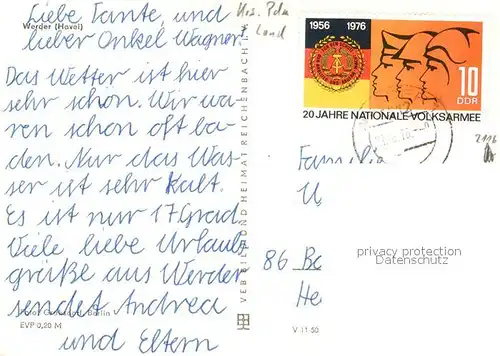 Liebe Tante, und
lieber Onkel Wagner!
Werder (Havel)
Das Wetter ist hier
sehr schön. Wir wa-
ren schon oft ba-
den. Nur das Was-
ser ist sehr kalt.
Es ist nur 17 Grad.
Viele liebe Urlaubs
grüße aus Werder
sendet Andrea
und Eltern
Berlin
EVP 0,20 M
VEB BILD UND HEIMAT REICHENBACH
V 11 50
Krs. Pdm
Land
1956 1976
10
DDR
20 JAHRE NATIONALE VOLKSARMEE
2116
Familie
U
86 Ba
He
privacy protection
Datenschutz